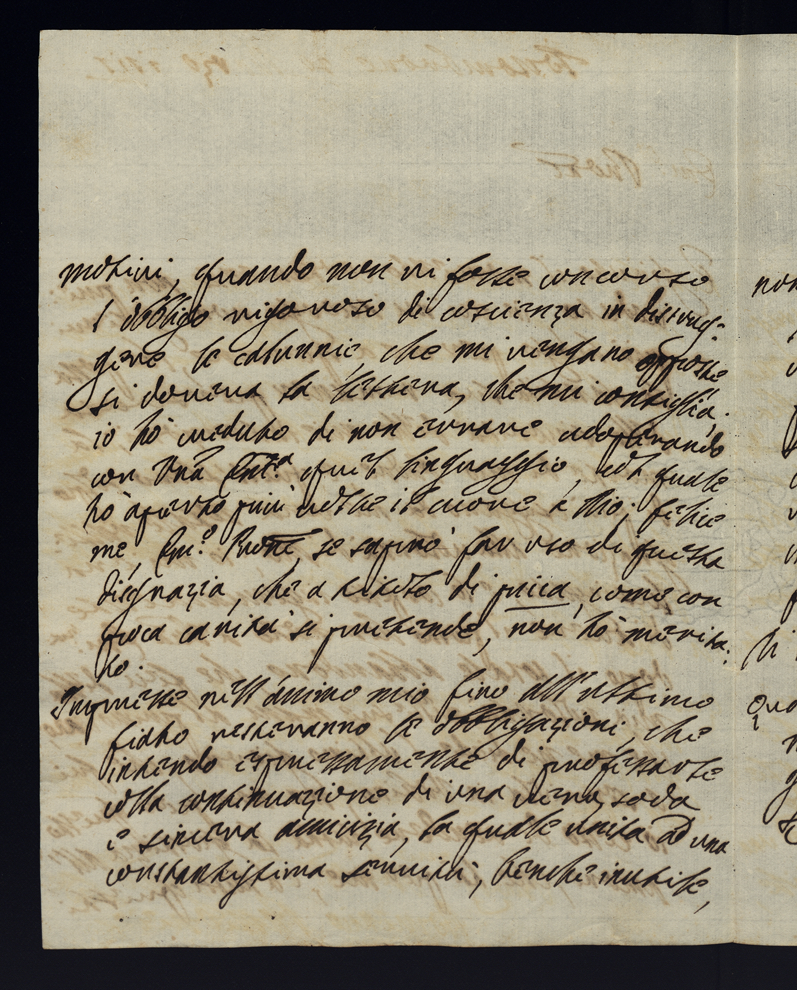 motivi, quando non vi fosse concorso
l'obbligo rigoroso di coscienza in distrug-
gere le calunnie, che mi vengano opposte
si doveva la lettera, che mi consiglia;
io hò creduto di non errare adoperando
con Vrã Em.ª quel linguaggio, col quale
hò aperto più volte il cuore à Dio; felice
me, Em.º Prone, se saprò far uso di questa
disgrazia, che a titolo di pena, come con
poca carità si pretende, non hò merita-
to.
Impresse nell'animo mio fino all'ultimo
fiato resteranno le obbligazioni, che
intendo espressamente di professarle
colla continuazione di una vera, soda
e sincera amicizia, la quale unita ad una
constantissima servitù, benche inutile,